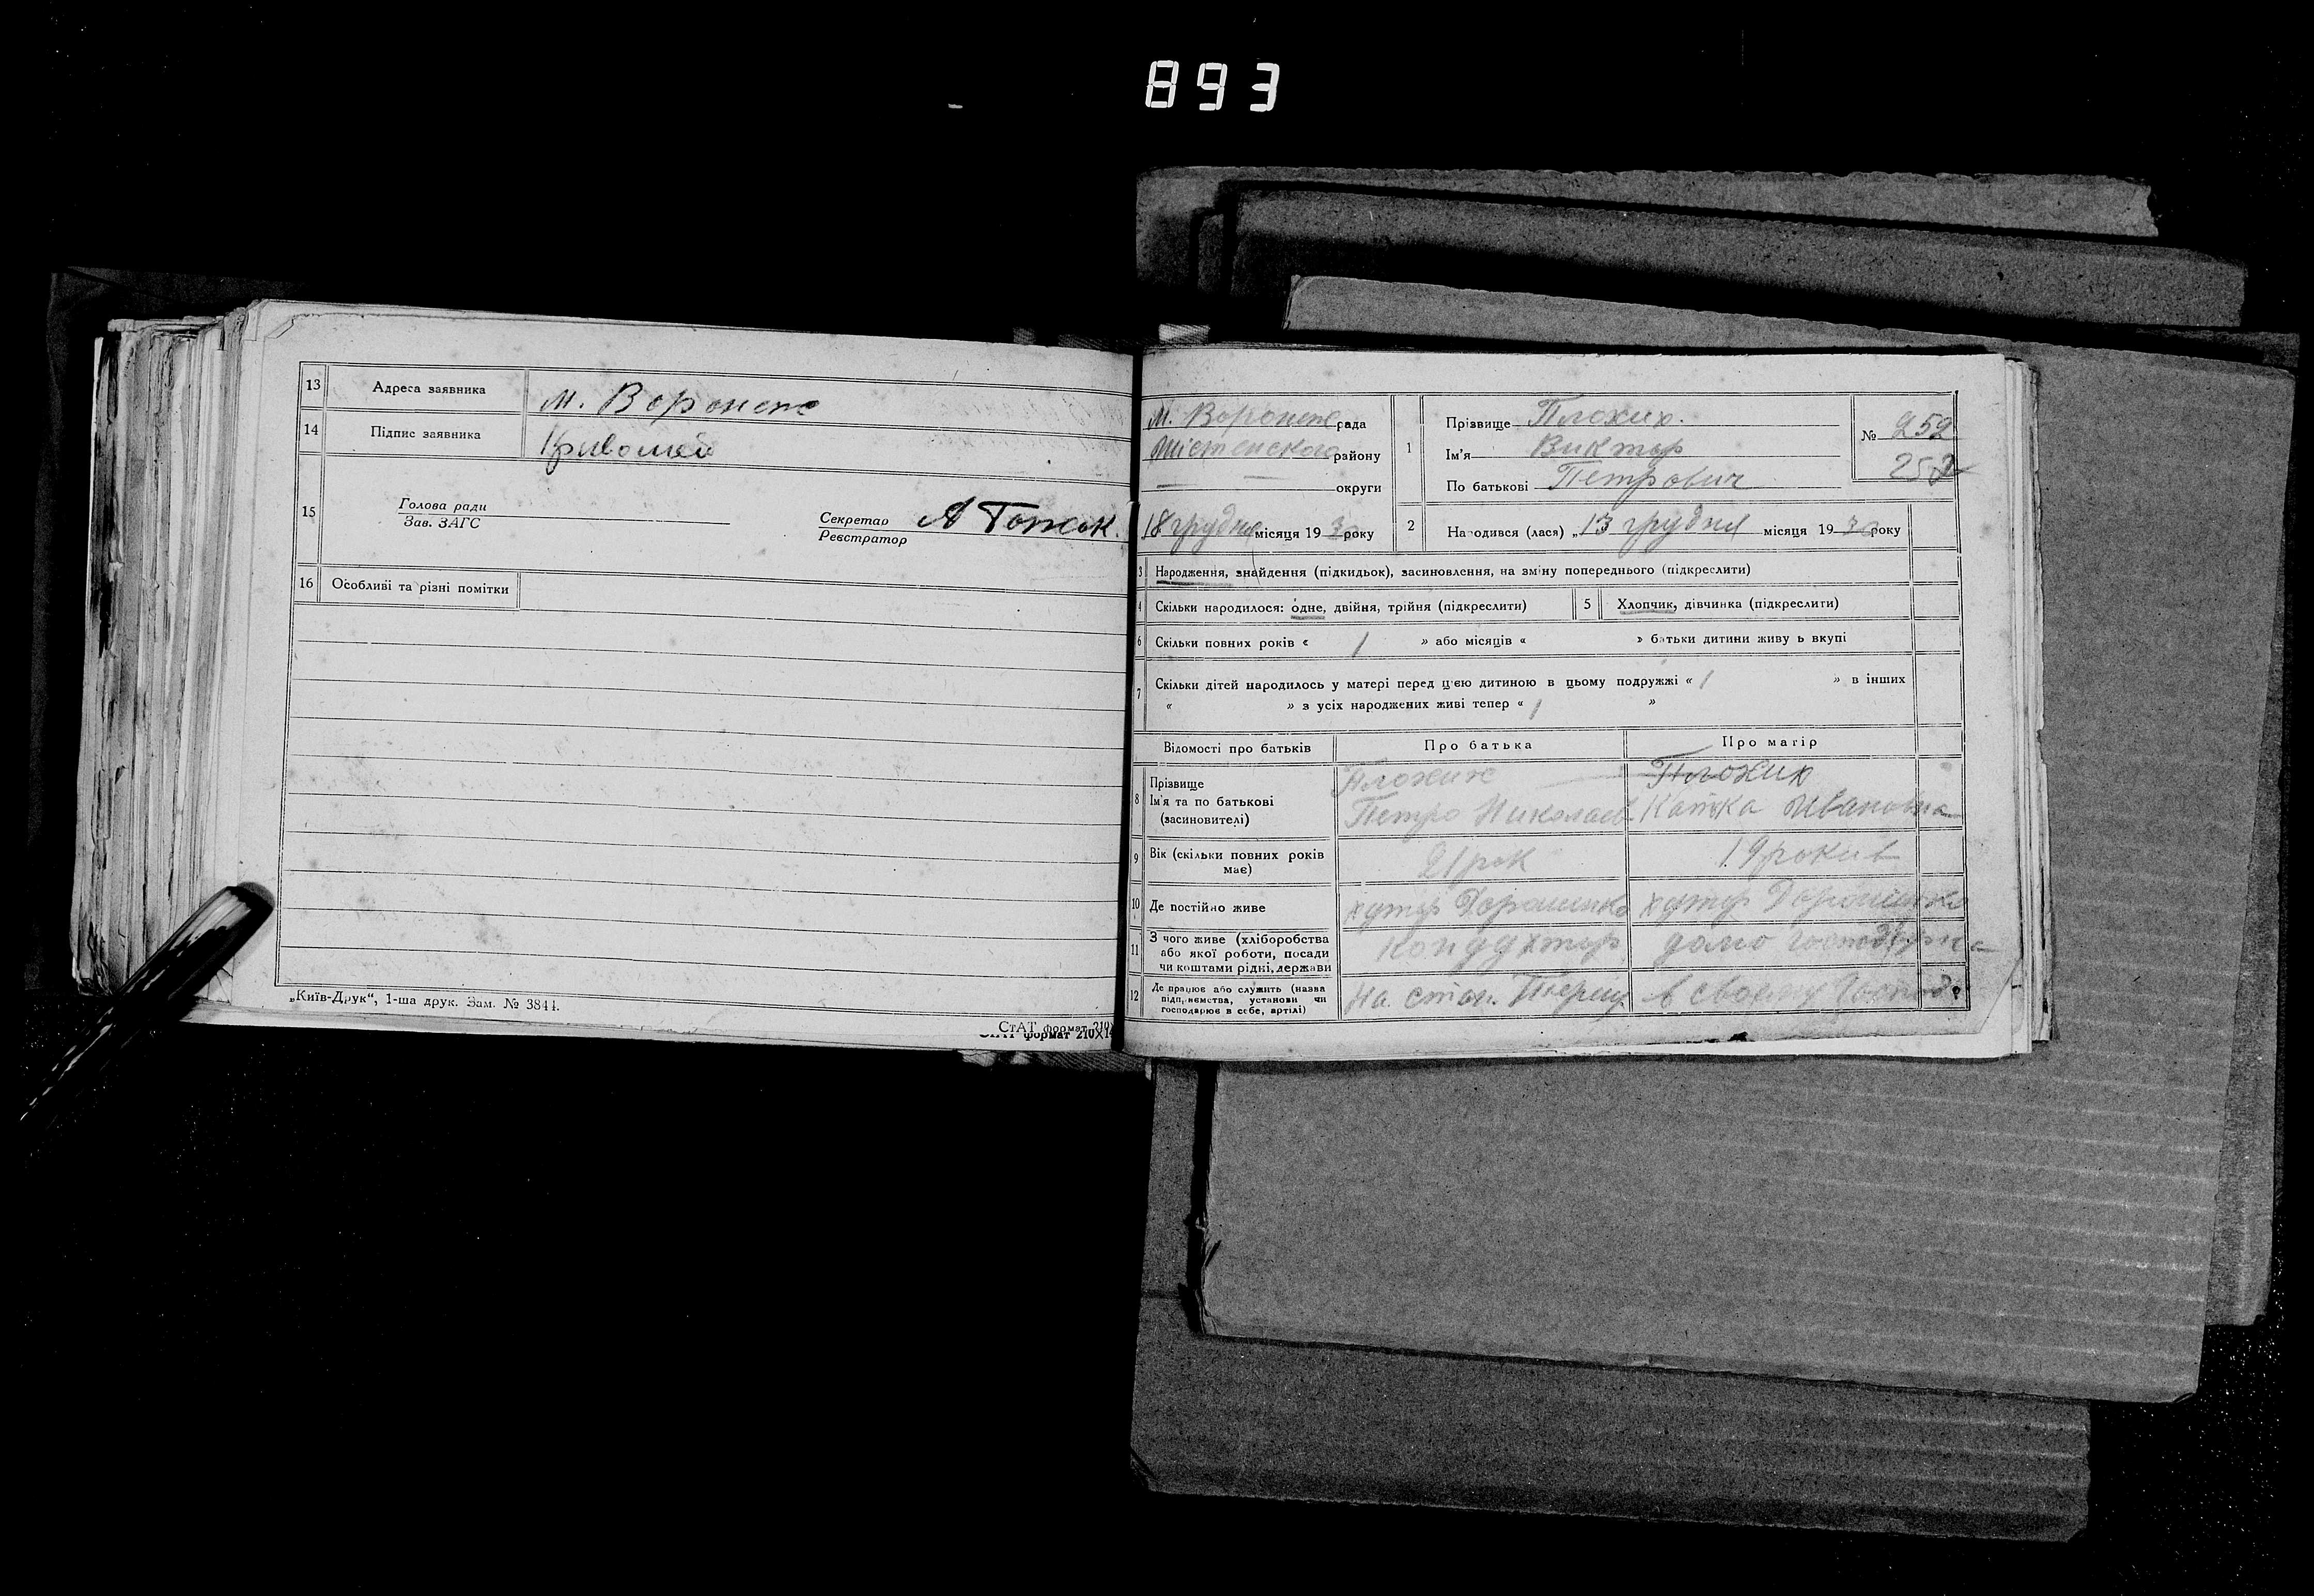 893
13 Адреса заявника м. Воронеж
14 Підпис заявника
15 Голова ради
Зав. ЗАГС
Секретар А Гожок.
Реєстратор
16 Особливі та різні помітки
„Київ-Друк“, 1-ша друк. Зам. № 3844.
СтАТ формат 210Х
СтАТ формат 210Х14
М. Воронеж рада
району
округи
18 грудня місяця 1930 року
1 Прізвище Плохих.
Ім'я Виктор
По батькові Петрович
№ 252
252
2 Народився (лася) „13 грудня місяця 1930 року
3 Народження, знайдення (підкидьок), засиновлення, на зміну попереднього (підкреслити)
4 Скільки народилося: одне, двійня, трійня (підкреслити)
5 Хлопчик, дівчинка (підкреслити)
6 Скільки повних років « 1 » або місяців « » батьки дитини живуть вкупі
7 Скільки дітей народилось у матері перед цією дитиною в цьому подружжі « 1 » в інших
« » з усіх народжених живі тепер « 1 »
Відомості про батьків Про батька Про матір
8 Прізвище Плохих Плохих
Ім'я та по батькові Петро Николаев Ивановна
(засновителі)
9 Вік (скільки повних років має) 21 рок 19 рокив
10 Де постійно живе хутор хутор
11 З чого живе (хліборобства або якої роботи, посади чи коштами рідні, держави Кондухтор
12 Де працює або служить (назва підприємства, установи чи господарює в себе, артілі) На стан. в своему